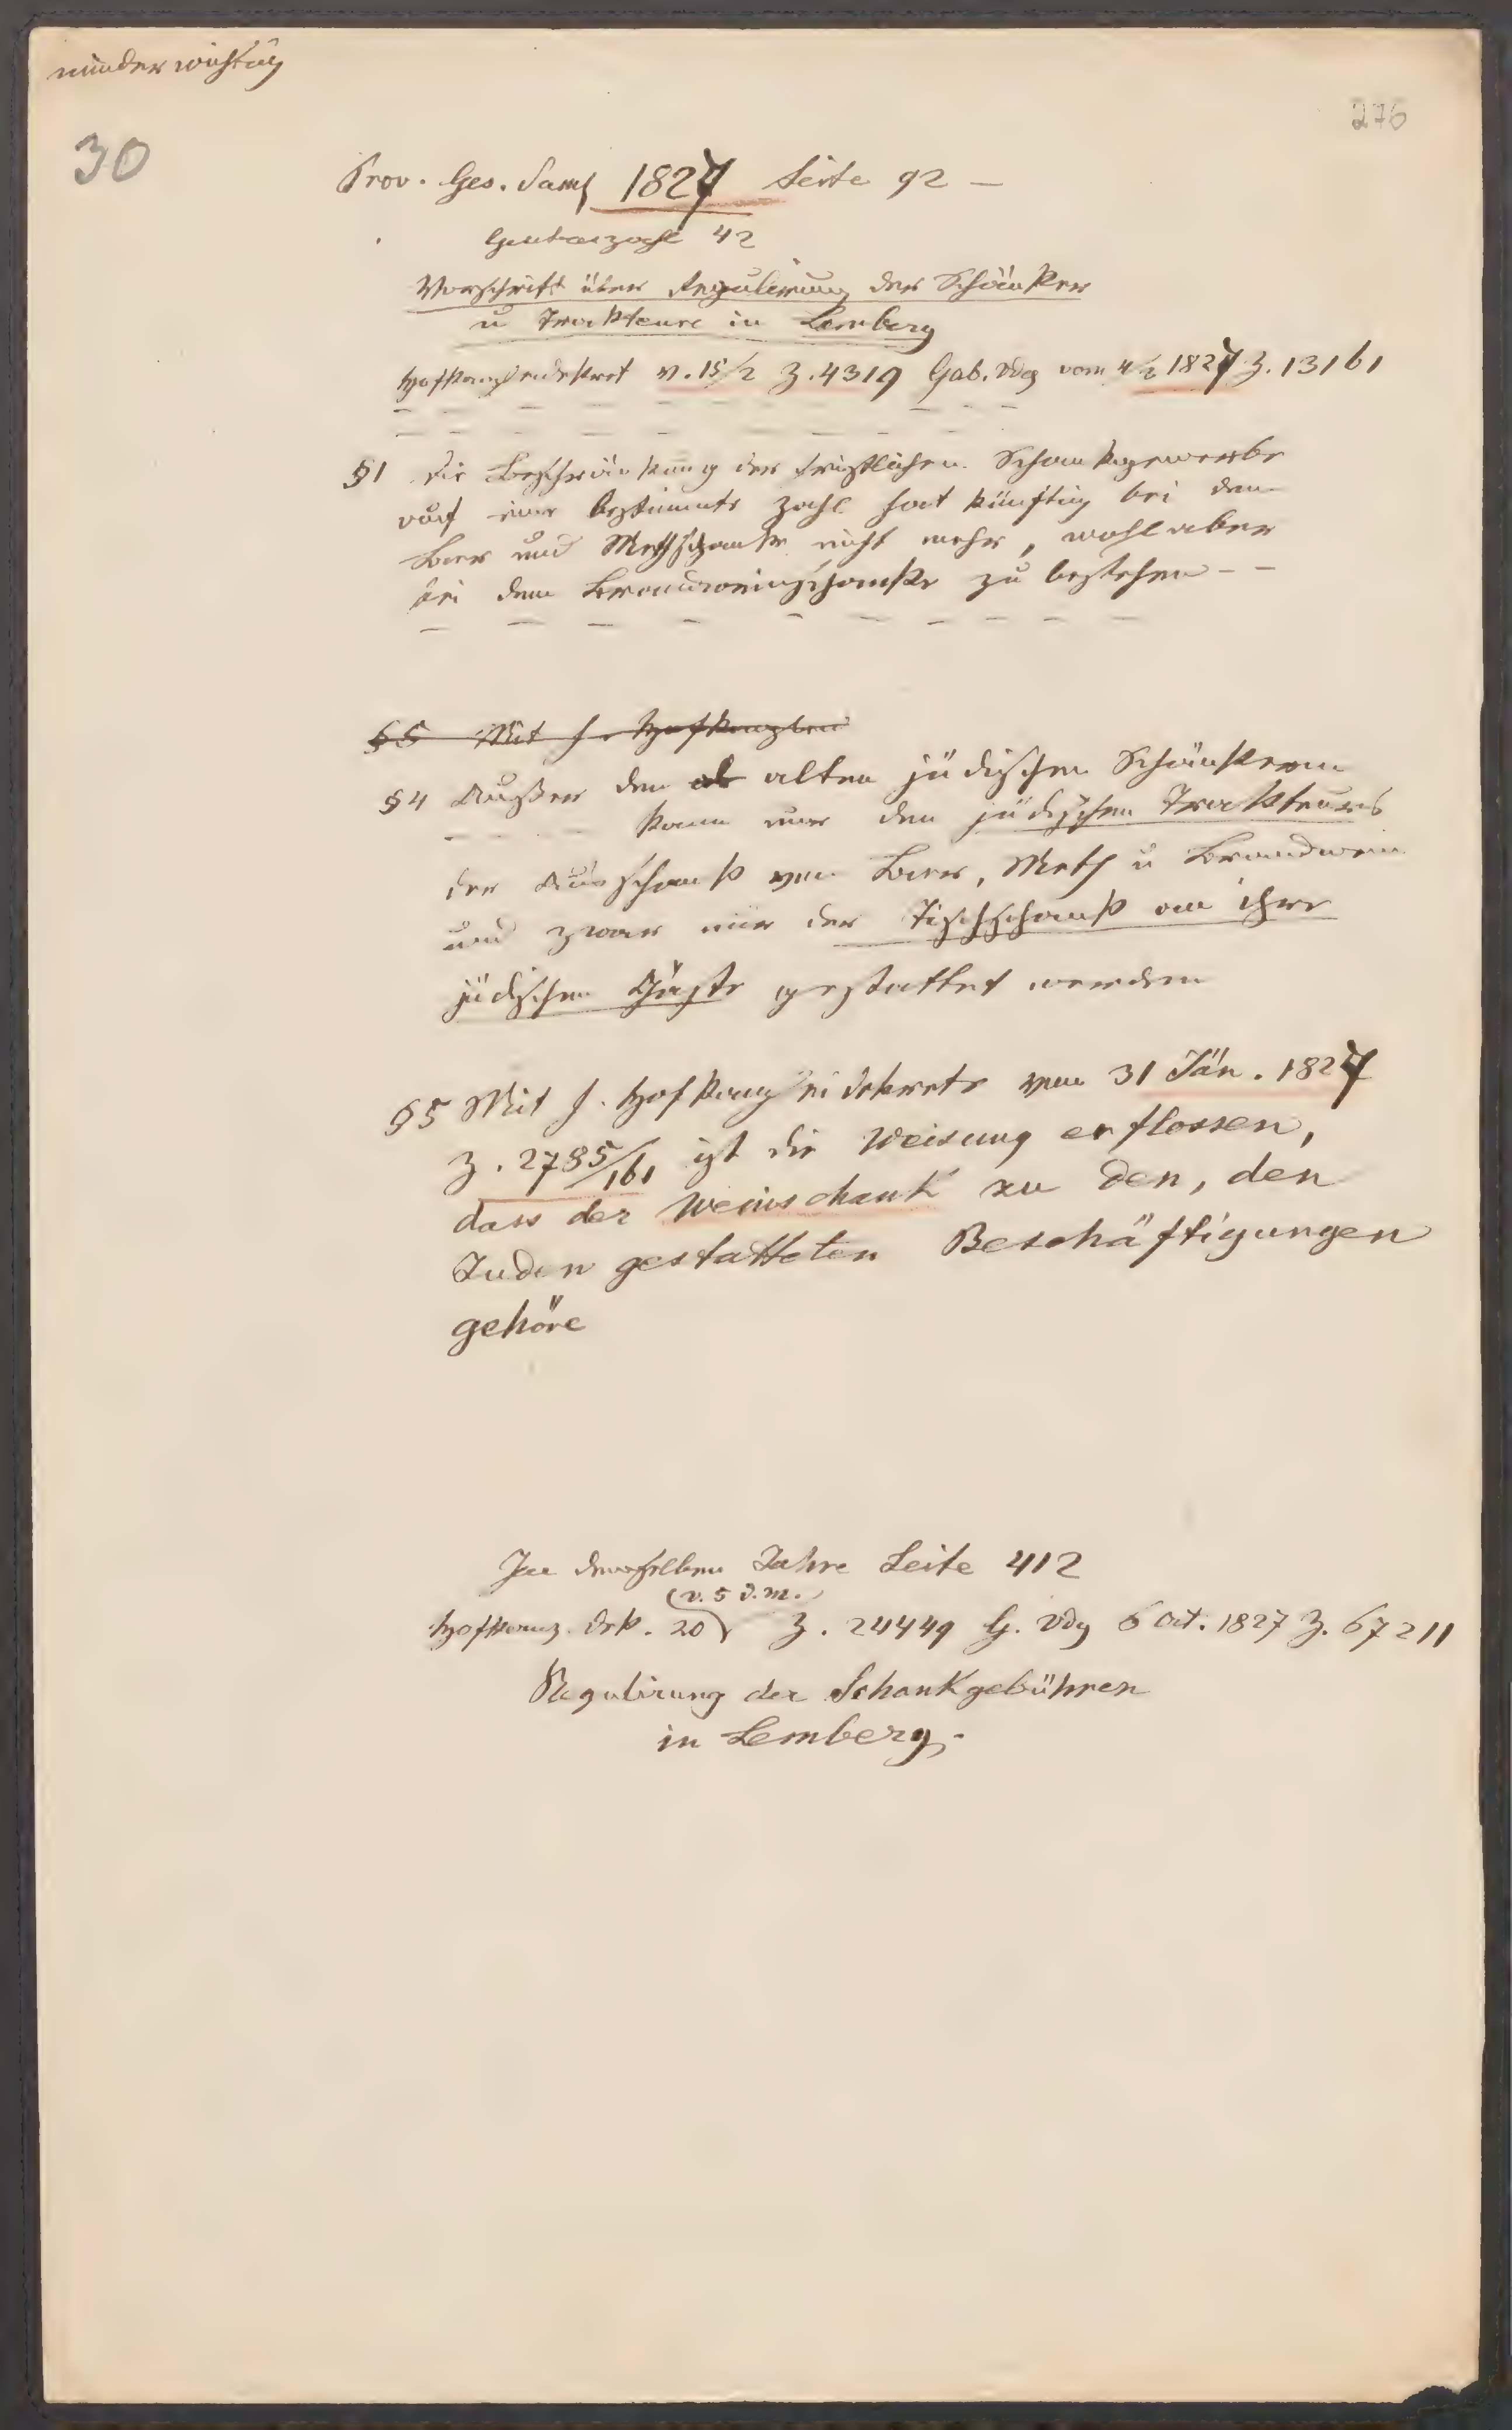 minder wichtig
276
30
Prov. Ges. Saml 1827 Seite 92 —
Gubernzahl 42
Vorschrift über Regulirung der Schänker
u Trakteure in Lemberg
Hofkanzleidekret v. 15/2 Z. 4319 Gub. Vdg vom 4/2 1827 Z. 13161
§1 Die Beschränkung der christlichen Schankgewerbe
auf eine bestimmte Zahl hat künftig bei dem
Bier und Methschanke nicht mehr, wohl aber
bei dem Brandweinschanke zu bestehen - -
§5 Mit h. Hofkanzlei
§4 Außer den al alten jüdischen Schänkern
- - - kann nur den jüdischen Trakteurs
der Ausschank von Bier, Meth u Brandwein
und zwar nur der Tischschank an ihre
jüdischen Gäste gestattet werden
§5 Mit h. Hofkanzleidekrete vom 31 Jän. 1827
Z. 2785/161 ist die Weisung erflossen,
dass der Weinschank zu den, den
Juden gestatteten Beschäftigungen
gehöre
In demselben Jahre Seite 412
(v. 5 d. M.)
Hofkanz. Dek. 20 Z. 24449 G. Vdg 6 Oct. 1827 Z. 67211
Regulirung der Schankgebühren
in Lemberg.